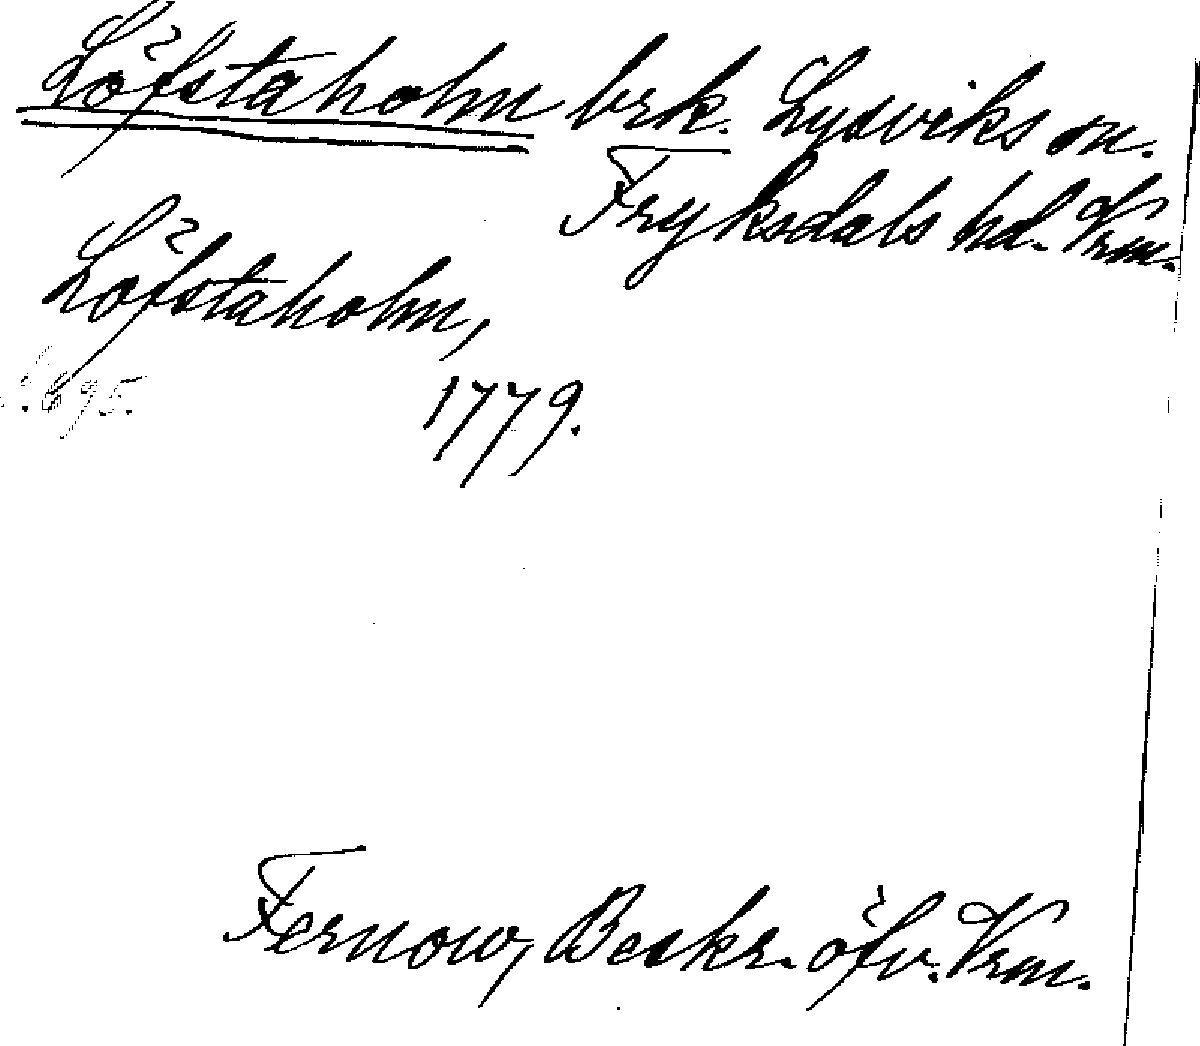 Löfstaholm brk. Lysviks sn.
Fryksdals hd. Vrm.
Löfstaholm,
s. 695.
1779.
Fernow, Beskr. öfv. Vrm.